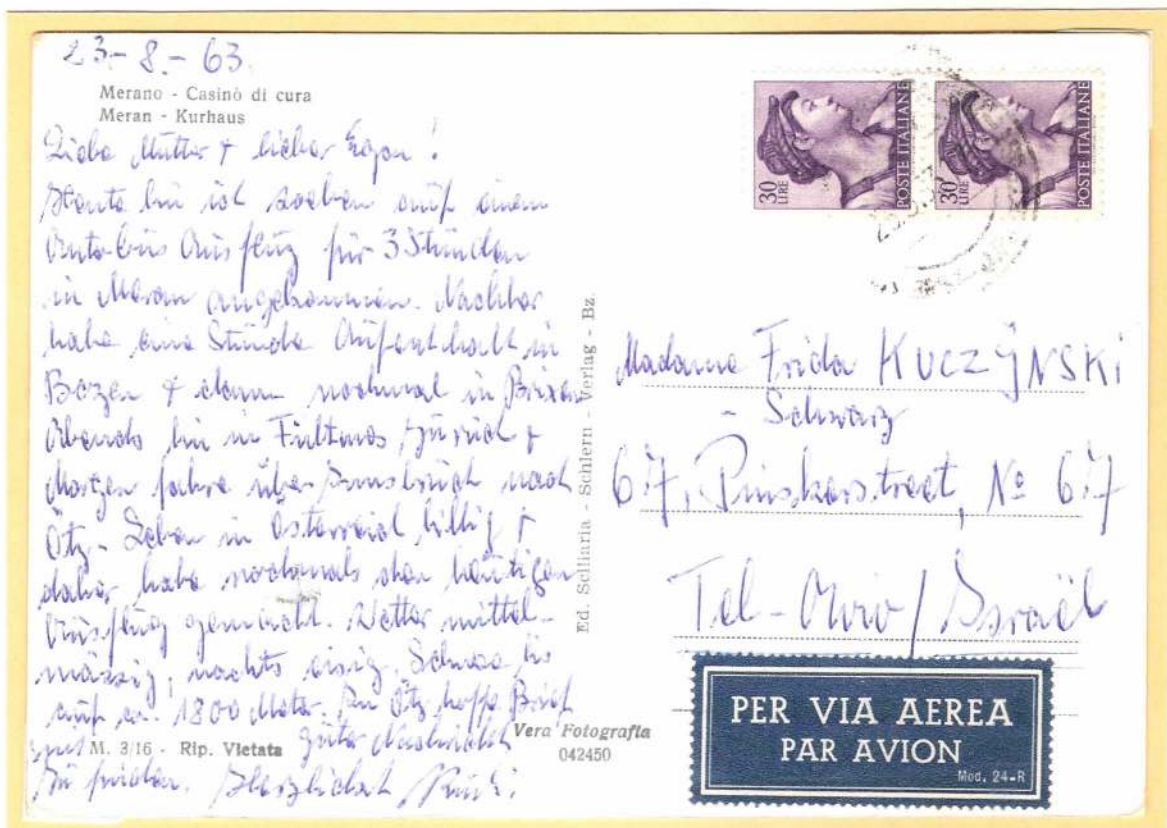 23-8-63.
Merano - Casinò di cura
Meran - Kurhaus
Liebe Mutter & lieber Egon!
Heute bin ich soeben auf einem
Autobus Ausflug für 3 Stunden
in Meran angekommen. Nachher
habe eine Stunde Aufenthalt in
Bozen & dann nochmal in Brixen
Abends bin in zurück &
Morgen fahre über Innsbruck nach
Ötz - Leben in Österreich billig &
daher habe nochmals den heutigen
Ausflug gemacht. Wetter mittel-
mässig, nachts eisig. Schnee bis
auf ca. 1800 Meter. In Ötz hoffe Brief
mit guter Nachricht
zu finden. Herzlichst
M. 3/16 - Rip. Vietata
Vera Fotografia
042450
Ed. Sciliaria - Schlern - Verlag - Bz.
30 LIRE
POSTE ITALIANE
30 LIRE
POSTE ITALIANE
Madame Frida KUCZYNSKI
- Schwarz
67, Pinskerstreet, No 67
Tel-Aviv / Israël
PER VIA AEREA
PAR AVION
Mod. 24-R